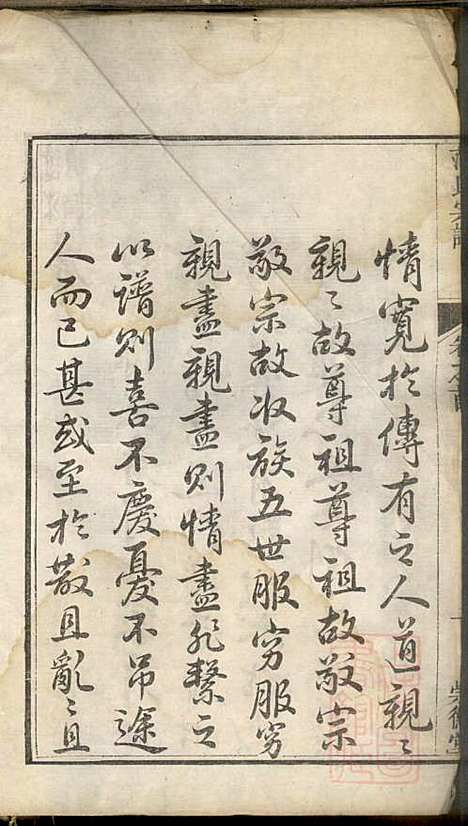 情寬於傳有之人道親〻
親〻故尊祖尊祖故敬宗
敬宗故收族五世服窮服窮
親盡親盡則情盡非繫之
以譜則喜不慶憂不吊途
人而已甚或至於散且亂〻且
氏宗譜
卷之首
一